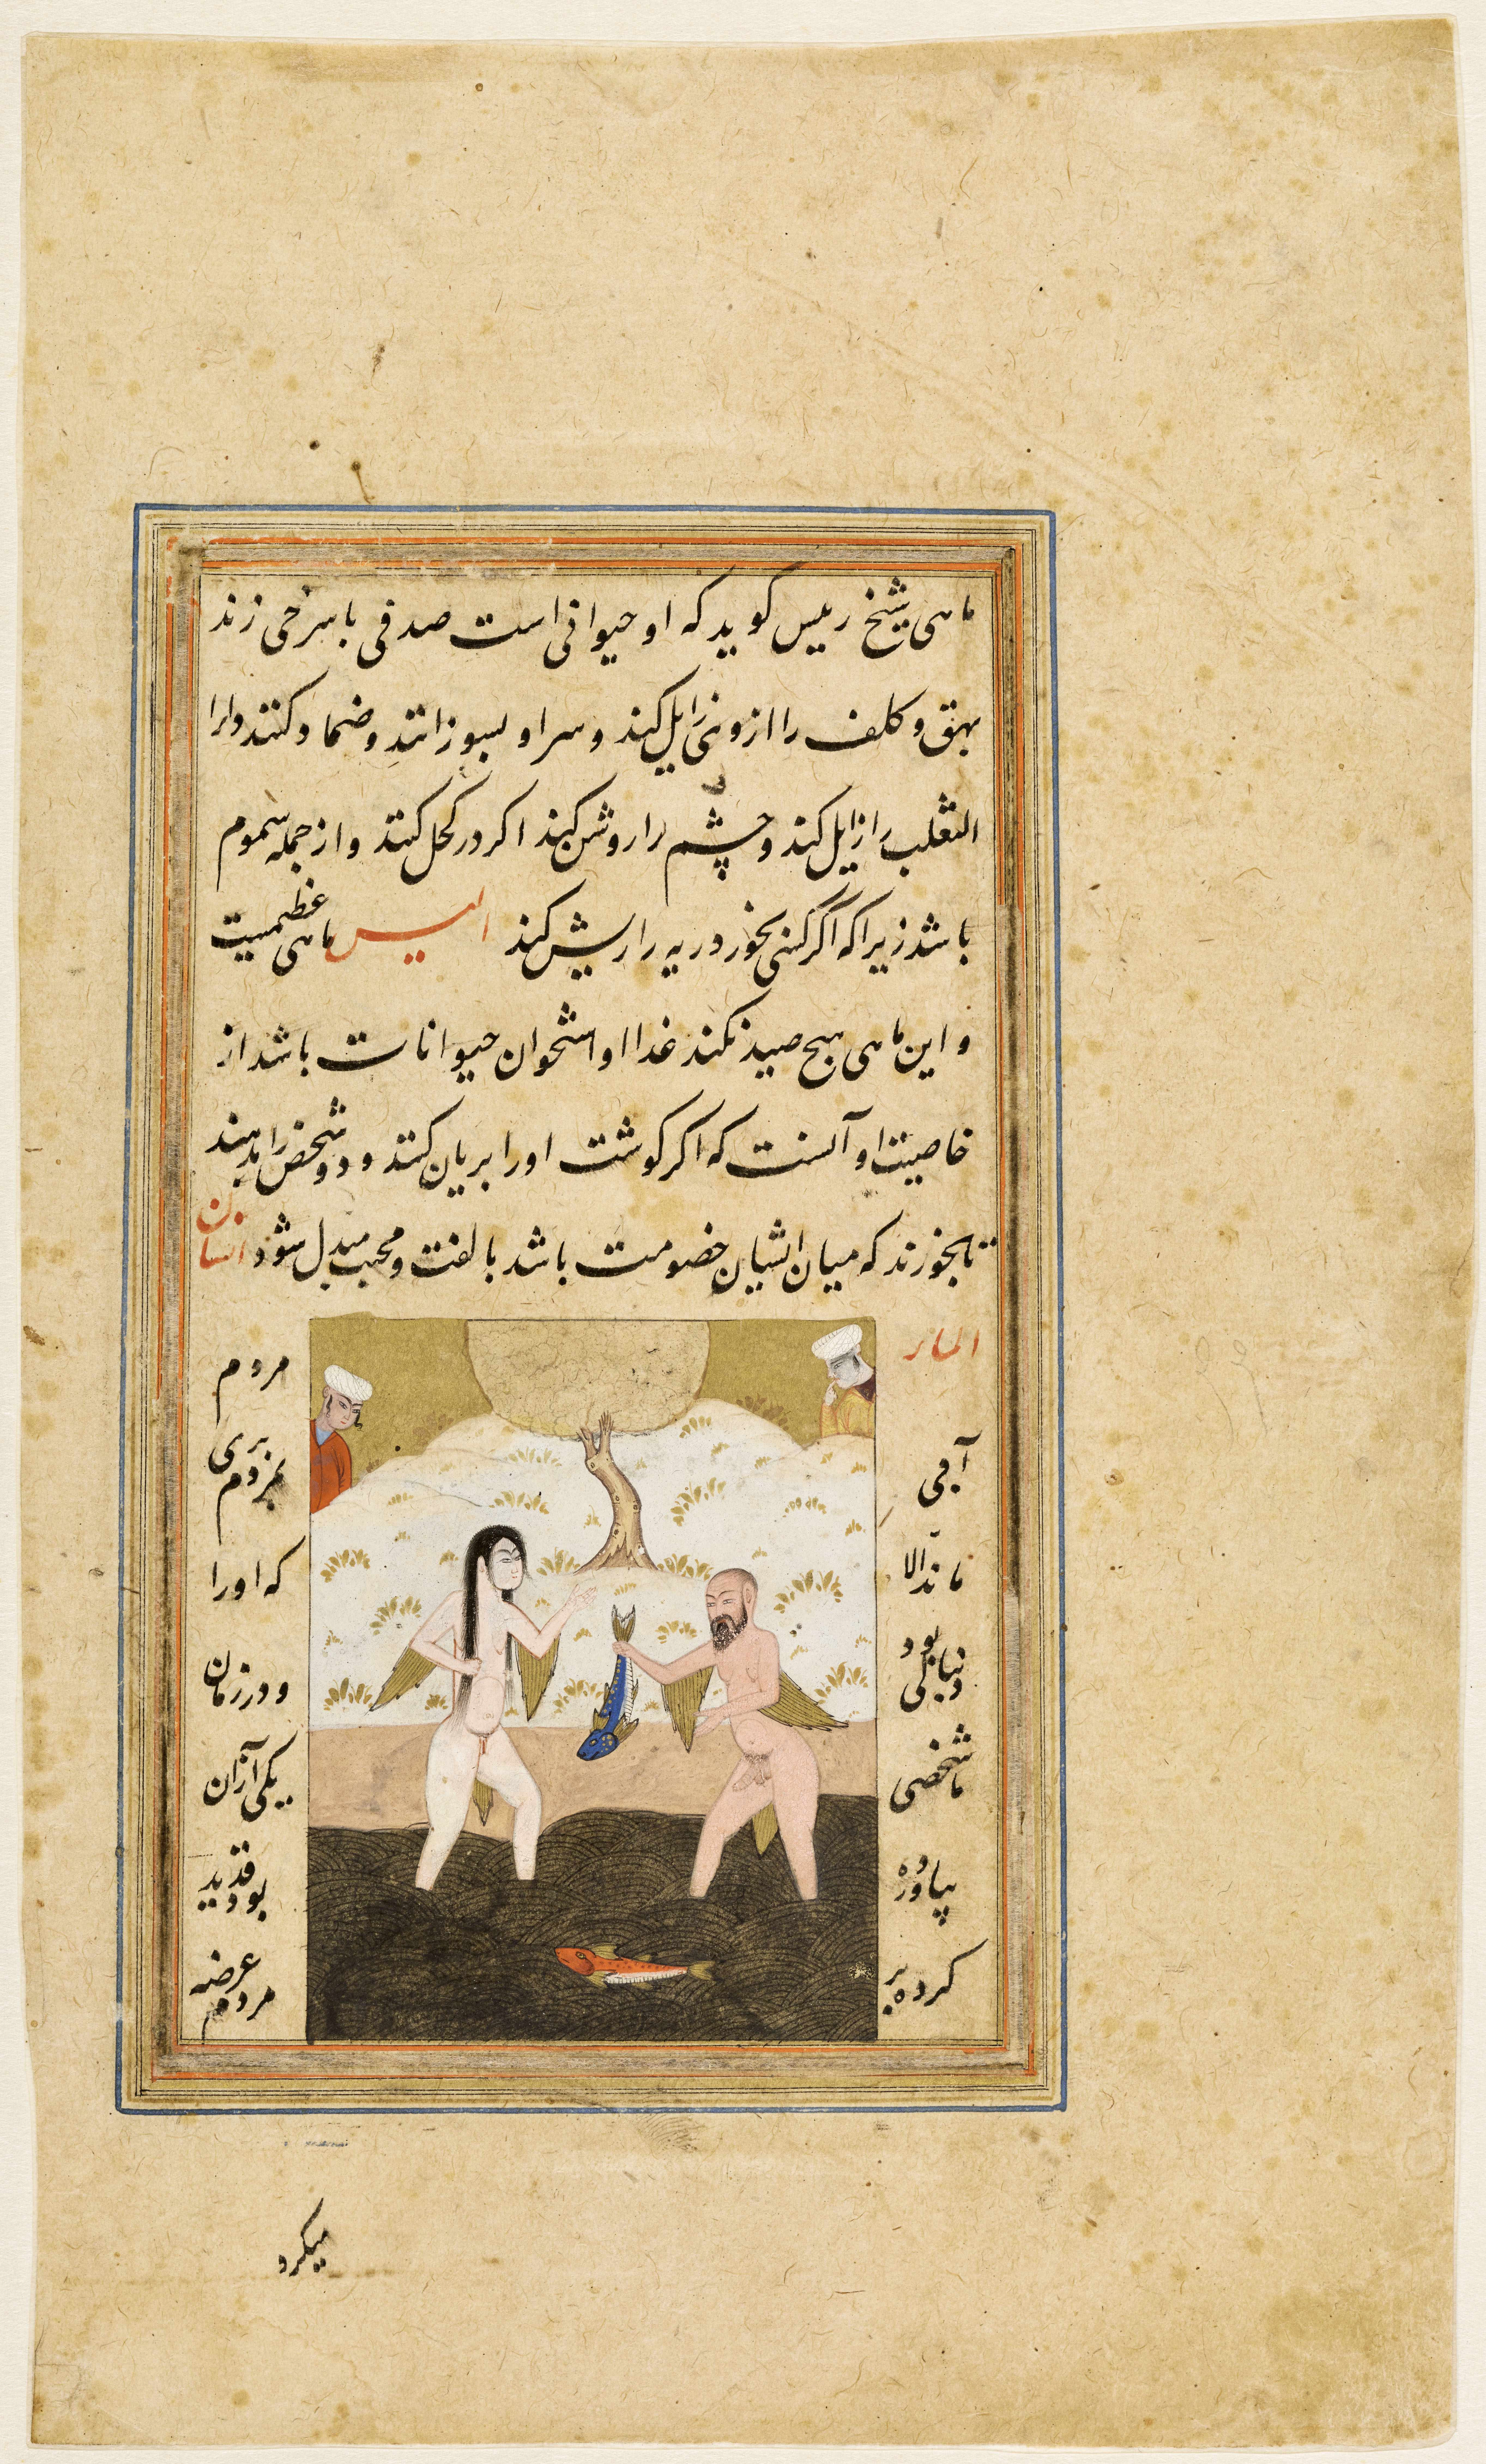 ماهی شیخ رییس کوید که او حیوانی است صدفی با سرخی زند
بهق و کلف را ازو نی زایل کند و سر او بسوزانند و ضماد کنند دارا
الثعلب را زایل کند و چشم را روشن کند اکر در کحل کنند و از جمله سموم
باشد زیرا که اکر کسی بخورد ریه را ریش کند الیس ماهی عظیمیست
و این ماهی هیچ صید نکند غذا او استخوان حیوانات باشد از
خاصیت او آنست که اکر کوشت اورا بریان کنند و دو شخص را بدهند
تا بخورند که میان ایشان خصومت باشد بالفت و محبت مبدل شود انسان
الماء مردم
آبی بمردم بری
ماند الا که اورا
دنبالی بود و در زمان
ما شخصی یکی از آن
بیاورده بود قدید
کرده بر مردم عرضه
میکرد